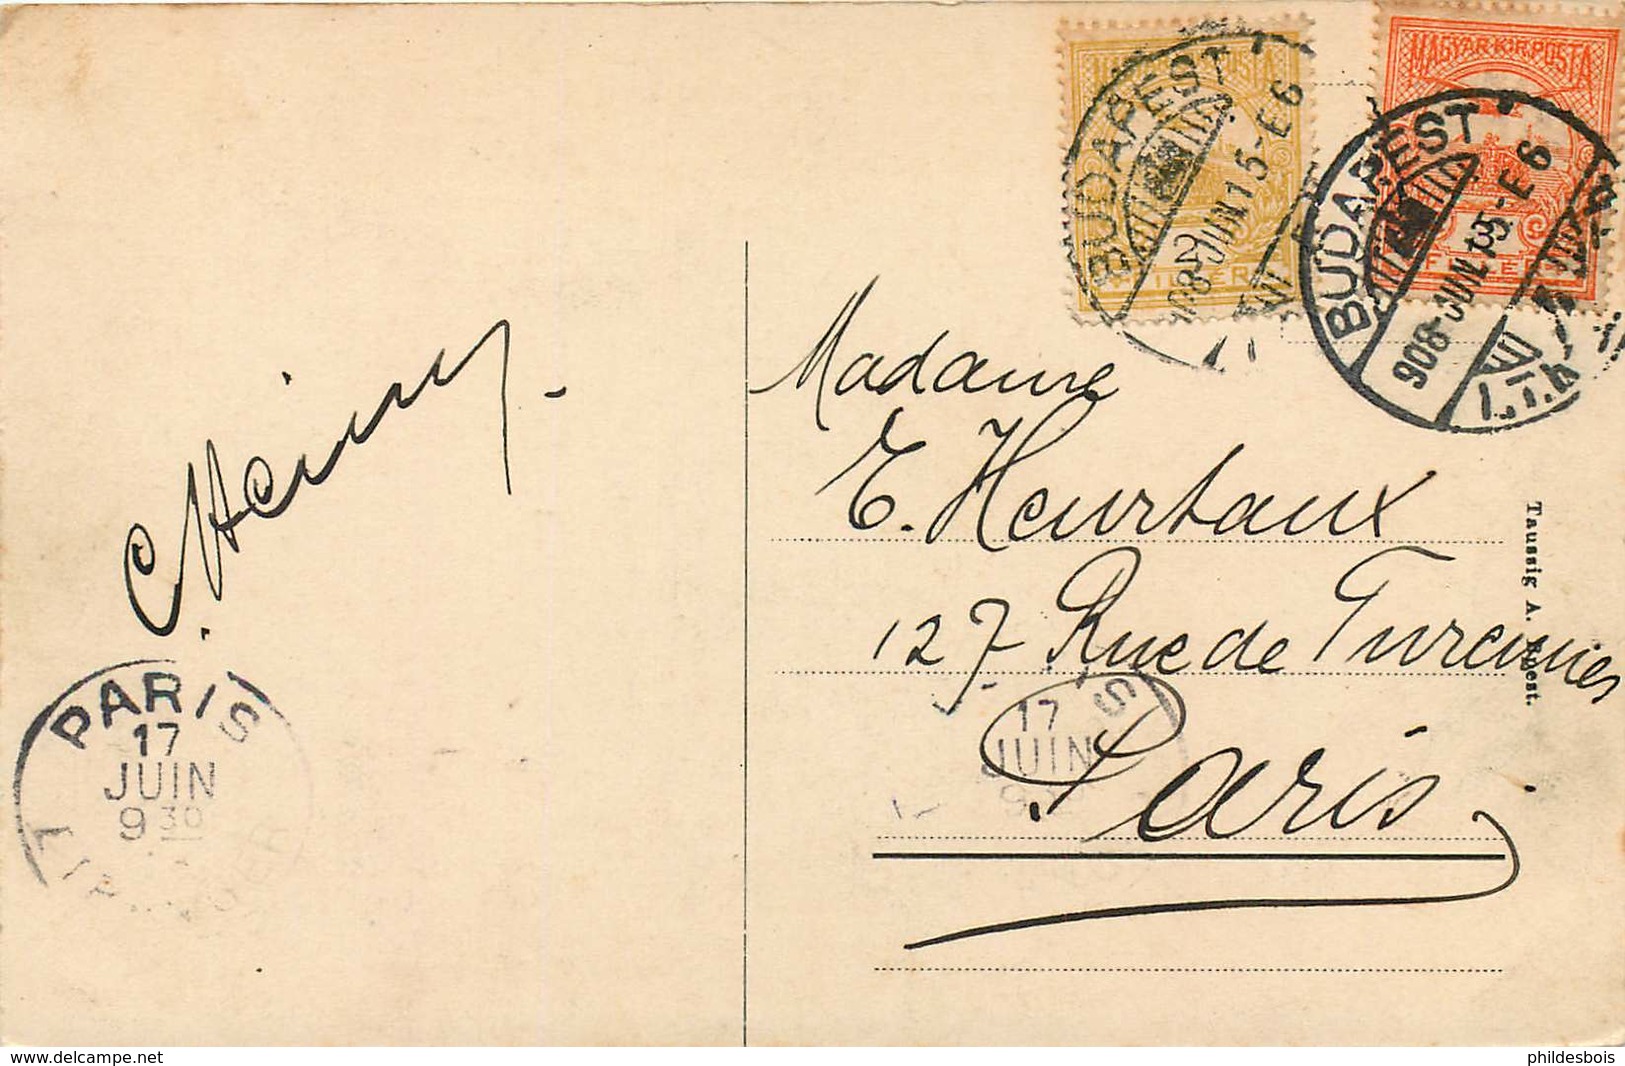 MAGYAR KIR. POSTA
2
BUDAPEST
908 JUN 15 - E 6
VII
BUDAPEST
908 JUN 15 - E 6
VII
Madame
E. Heurtaux
127 Rue de Turennes
Paris
Taussig A. Bpest.
PARIS
17
JUIN
9 30
17
JUIN
www.delcampe.net
phildesbois